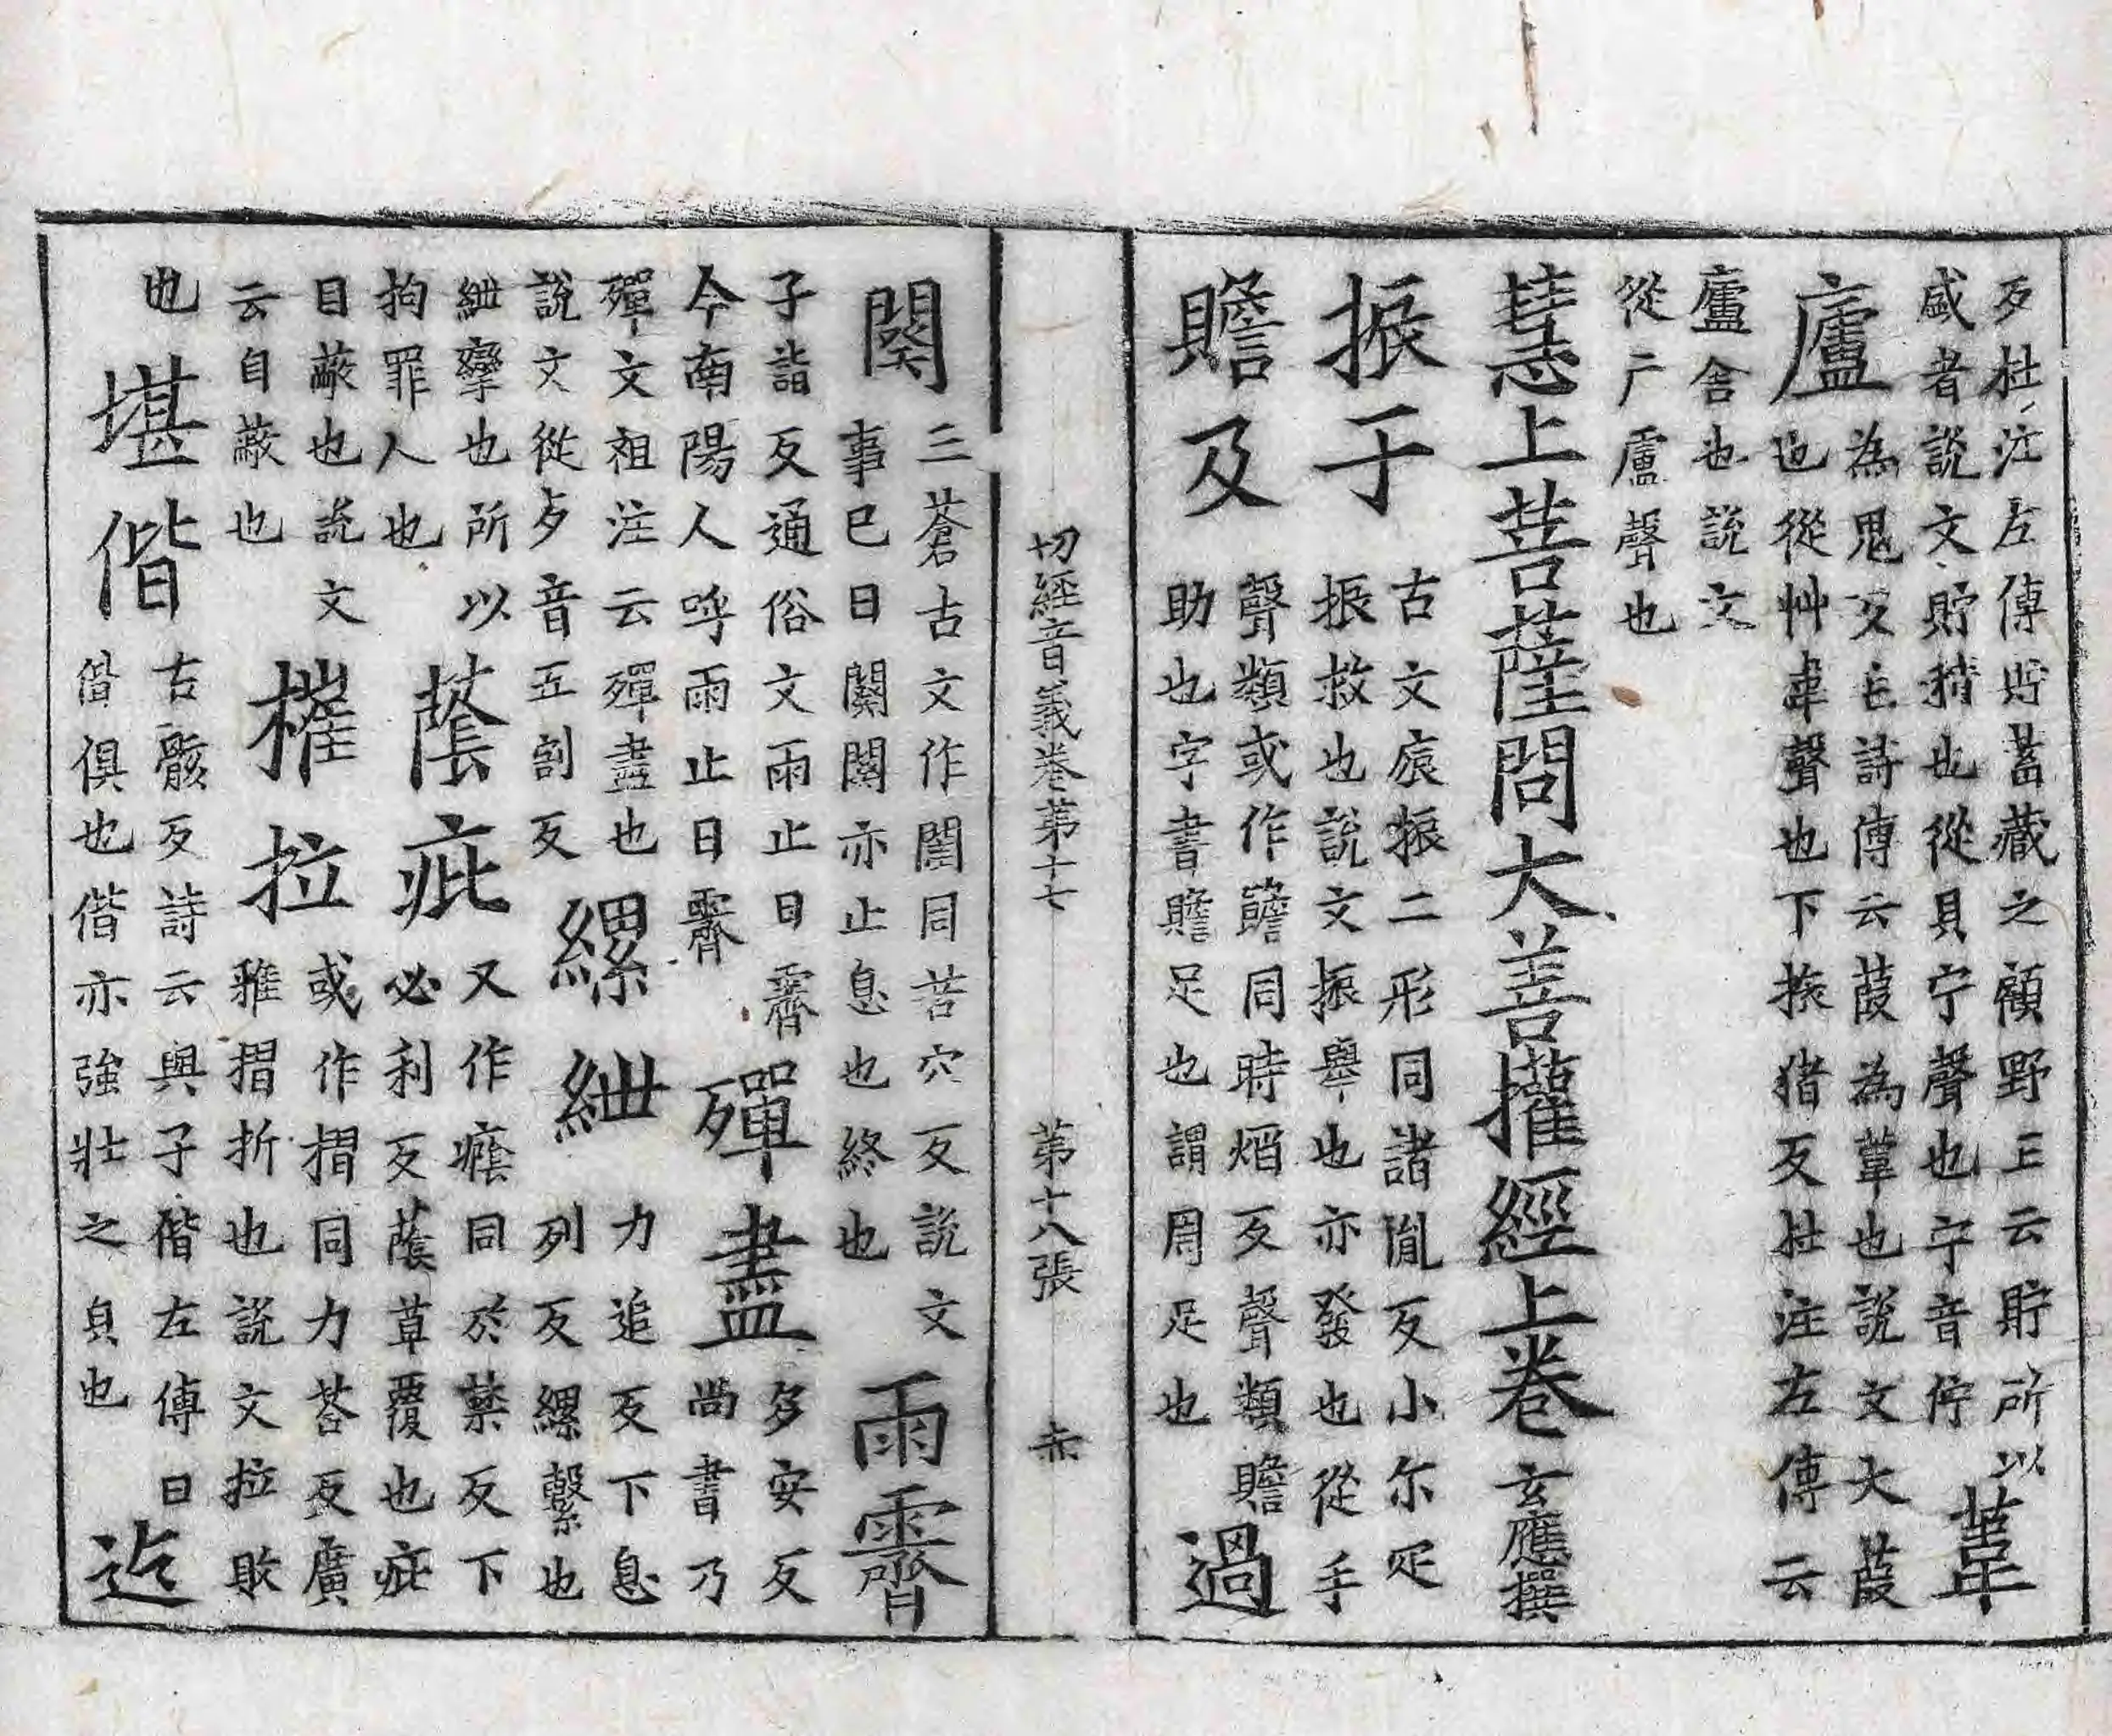 反杜注左傳貯蓄藏之顧野王云貯所以
盛者說文貯積也從貝宁聲也宁音佇
葦
廬
為鬼反毛詩傳云葭為葦也說文大葭
也從艸韋聲也下捩猪反杜注左傳云
廬舍也說文
從广盧聲也
慧上菩薩問大善攉經上卷 玄應撰
振于
古文宸振二形同諸胤反小尔疋
振救也說文振舉也亦發也從手
贍及
聲類或作䪜同時焰反聲類贍
助也字書贍足也謂周足也
過
切經音義卷第十七 第十八張 赤
闋
三蒼古文作䦧同苦穴反說文
事已曰闋闋亦止息也終也
雨霽
子詣反通俗文雨止曰霽
今南陽人呼雨止曰霽
殫盡
多安反
尚書乃
殫文祖注云殫盡也
說文從歺音五割反
縲紲
力追反下息
列反縲繫也
紲攣也所以
拘罪人也
蔭疵
又作癊同於禁反下
必利反蔭草覆也疵
目蔽也說文
云自蔽也
摧拉
或作摺同力荅反廣
雅摺折也說文拉敗
也
堪偕
古骸反詩云與子偕左傳曰
偕俱也偕亦強壯之皃也
迄